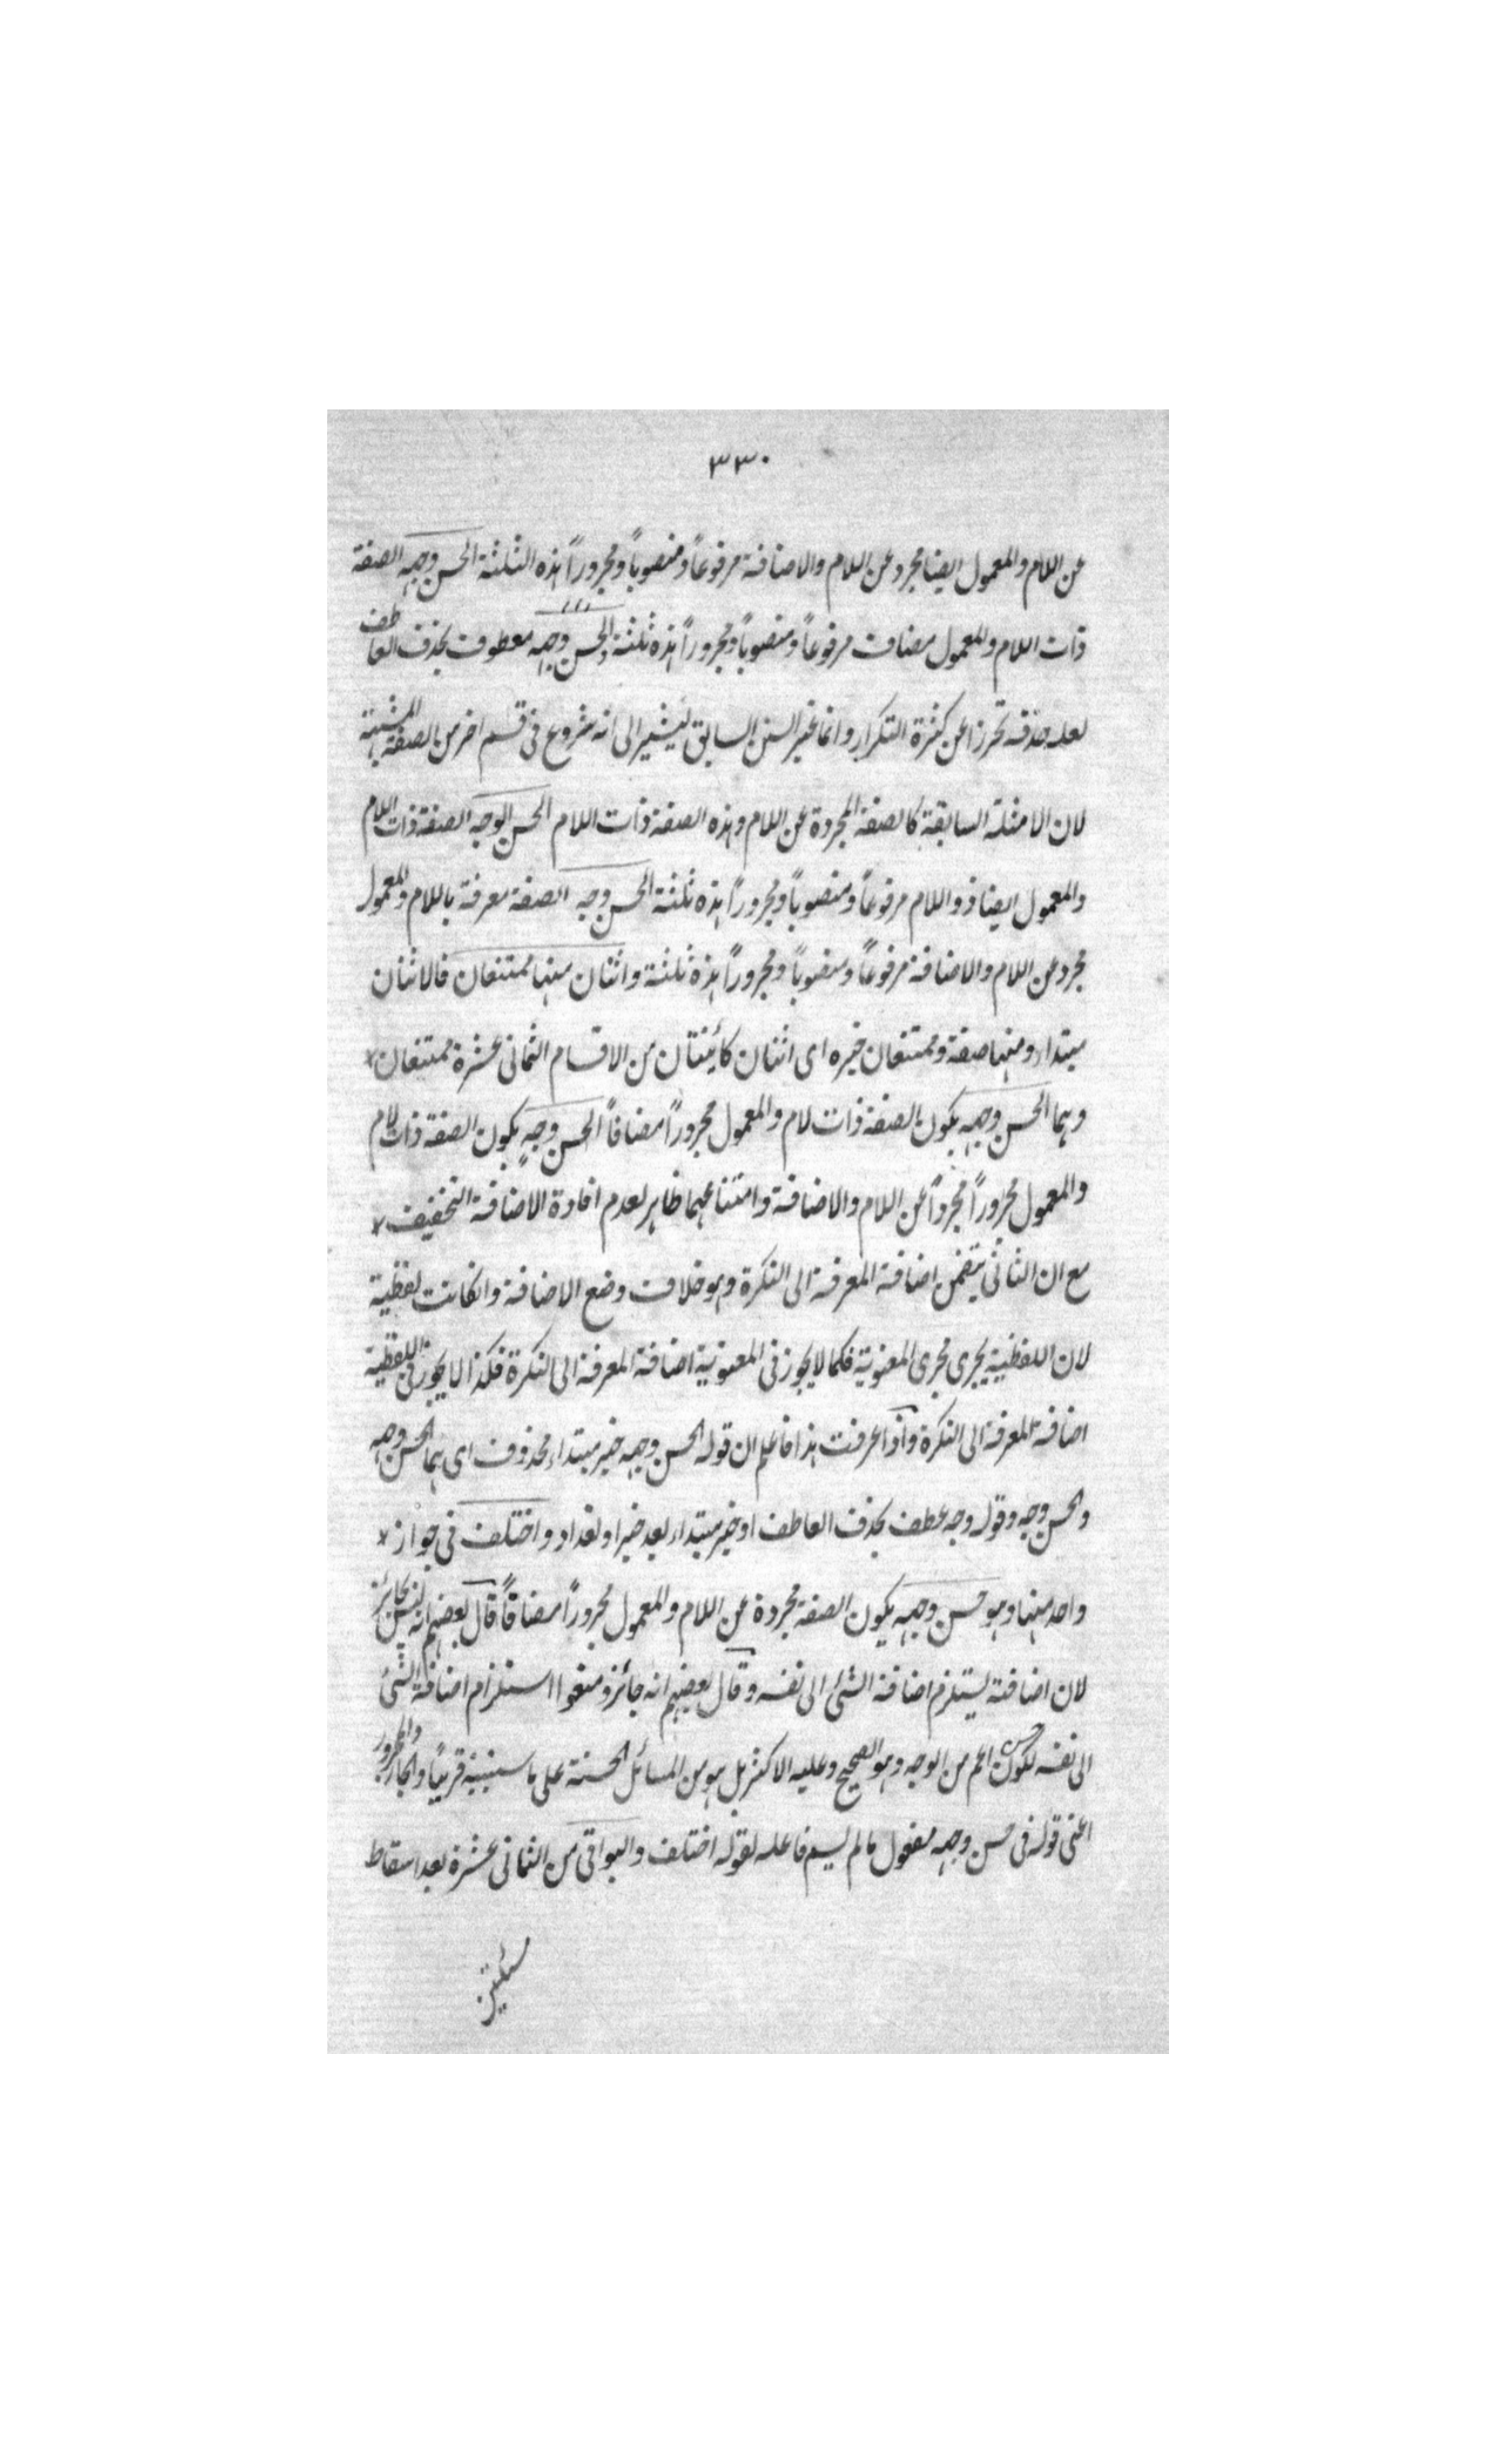 ٣٣٠
عن اللام والمعمول ايضا مجرد عن اللام والاضافة مرفوعاً ومنصوباً ومجروراً هذه الثلثة الحسن وجهه الصفة
ذات اللام والمعمول مضاف مرفوعاً ومنصوباً ومجروراً هذه ثلثة والحسن وجهه معطوف بحذف العاطف
لعله حذفه تحرزا عن كثرة التكرار وانما غير السنن السابق ليشير الى انه شروع فى قسم اخر من الصفة المشبهة
لان الامثلة السابقة كالصفة المجردة عن اللام وهذه الصفة ذات اللام الحسن الوجه الصفة ذات اللام
والمعمول ايضا ذو اللام مرفوعاً ومنصوباً ومجروراً هذه ثلثة الحسن وجه الصفة معرفة باللام والمعمول
مجرد عن اللام والاضافة مرفوعاً ومنصوباً ومجروراً هذه ثلثة واثنان منها ممتنعان فالاثنان
مبتداء ومنها صفة وممتنعان خبره اى اثنان كائنتان من الاقسام الثمانى عشرة ممتنعان
وهما الحسن وجهه بكون الصفة ذات لام والمعمول مجروراً مضافاً الحسن وجهٍ بكون الصفة ذات لام
والمعمول مجروراً مجرداً عن اللام والاضافة وامتناعهما ظاهر لعدم افادة الاضافة التخفيف
مع ان الثانى يتضمن اضافة المعرفة الى النكرة وهو خلاف وضع الاضافة وانكانت لفظية
لان اللفظية يجرى مجرى المعنوية فكما لا يجوز فى المعنوية اضافة المعرفة الى النكرة فكذا لا يجوز فى اللفظية
اضافة المعرفة الى النكرة واذا عرفت هذا فاعلم ان قوله الحسن وجهه خبر مبتداء محذوف اى هما الحسن وجهه
والحسن وجه وقوله وجه عطف بحذف العاطف او خبر مبتداء بعد خبر او تعداد واختلف فى جواز
واحد منها وهو حسن وجهه بكون الصفة مجردة عن اللام والمعمول مجروراً مضافاً قال بعضهم انه ليس بجائز
لان اضافته يستلزم اضافة الشئ الى نفسه وقال بعضهم انه جائز ومنعوا استلزام اضافة الشئ
الى نفسه لكون الحسن اعم من الوجه وهو الصحيح وعليه الاكثر بل هو من المسائل الحسنة على ما سنبينه قريباً والجار والمجرور
اعنى قوله فى حسن وجهه مفعول ما لم يسم فاعله لقوله اختلف والبواقى من الثمانى عشرة بعد اسقاط